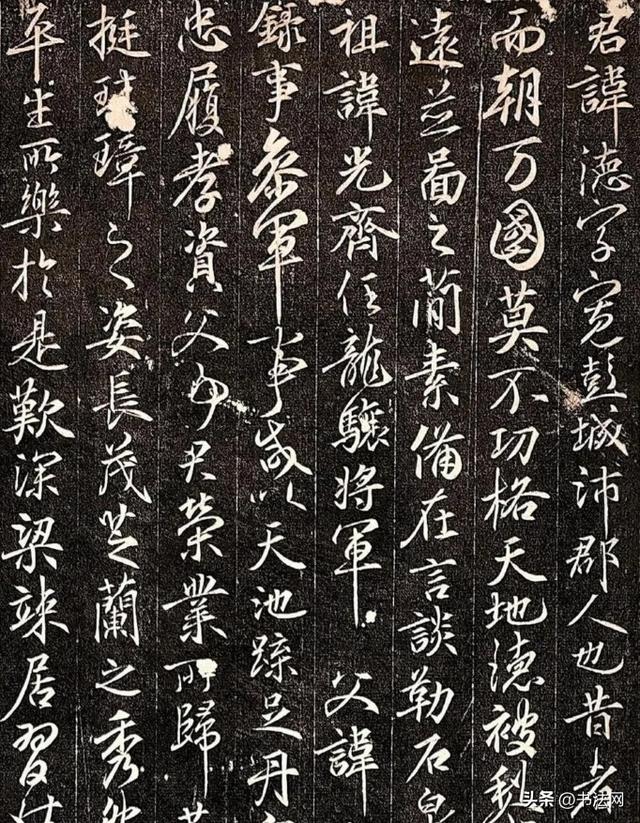 君諱德字寬彭城沛郡人也昔者
而朝万國莫不功格天地德被
遠芘啚之蕑素備在言談勒石
祖諱光齊任龍驤將軍父諱
錄事叅軍事咸以天池踈足丹
忠履孝資父事君榮業所歸
挺珪璋之姿長茂芝蘭之秀
平生所樂於是歎深梁竦居習
头条@书法网